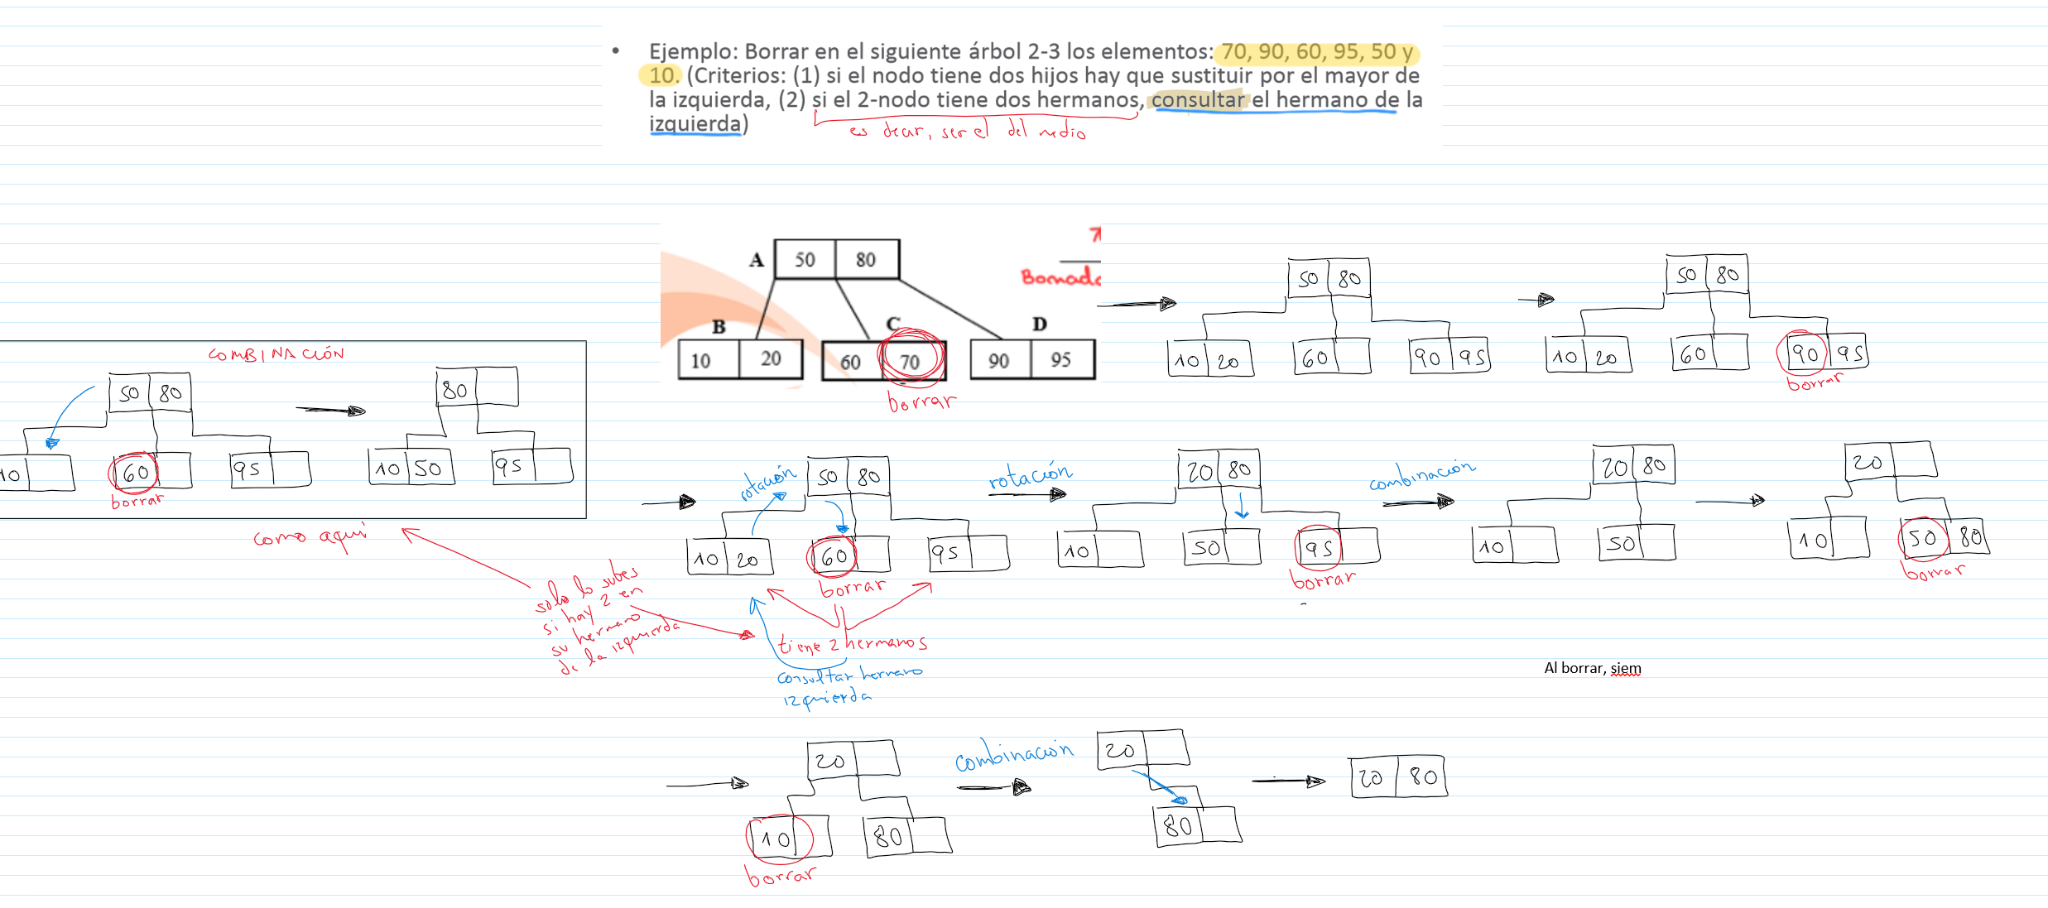 • Ejemplo: Borrar en el siguiente árbol 2-3 los elementos: 70, 90, 60, 95, 50 y
10. (Criterios: (1) si el nodo tiene dos hijos hay que sustituir por el mayor de
la izquierda, (2) si el 2-nodo tiene dos hermanos, consultar el hermano de la
izquierda)
es decir, ser el del medio
A 50 80
B C D
10 20 60 70 90 95
borrar
50 80
10 20 60 90 95
50 80
10 20 60 90 95
borrar
COMBINACIÓN
50 80
10 60 95
borrar
80
10 50 95
como aquí
rotación
50 80
10 20 60 95
borrar
solo lo subes
si hay 2 en
su hermano
de la izquierda
tiene 2 hermanos
consultar hermano
izquierda
rotación
20 80
10 50 95
borrar
combinación
20 80
10 50
20
10 50 80
borrar
Al borrar, siem
20
10 80
borrar
combinación
20
80
20 80